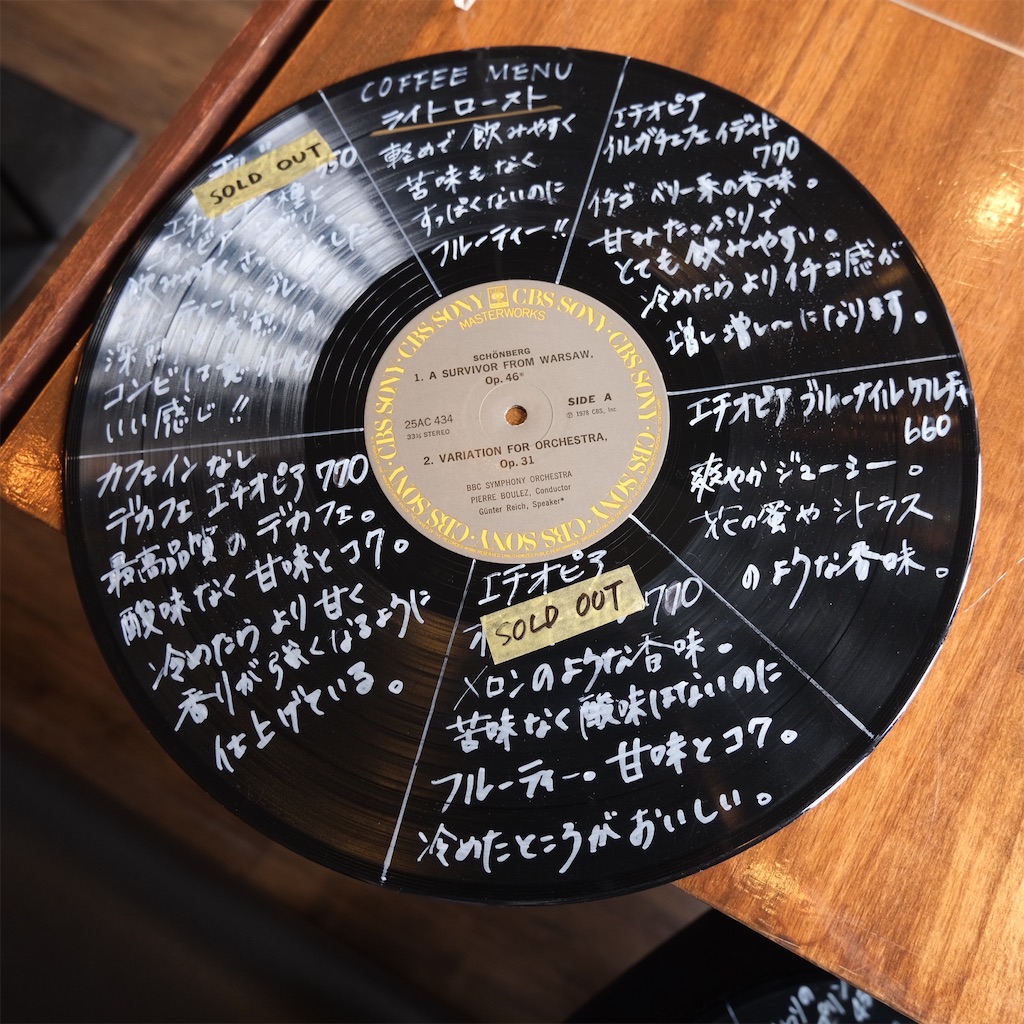 COFFEE MENU
ライトロースト
軽めで 飲みやすく
苦味もなく
すっぱくないのに
フルーティー!!
エチオピア
イルガチェフェ イディド
770
イチゴ ベリー系の香味。
甘みたっぷりで
とても 飲みやすい。
冷めたら よりイチゴ感が
増し増し〜になります。
エチオピア ブルーナイル ケルチャ
660
爽やか ジューシー。
花の蜜や シトラス
のような香味。
エチオピア
SOLD OUT 770
メロンのような香味。
苦味なく酸味はないのに
フルーティー。甘味とコク。
冷めたところがおいしい。
カフェインなし
デカフェ エチオピア 770
最高品質の デカフェ。
酸味なく 甘味とコク。
冷めたら より 甘く
香りが強くなるように
仕上げている。
SOLD OUT 750
いい感じ!!
CBS SONY · CBS SONY · CBS SONY · CBS SONY · CBS SONY · CBS SONY
MASTERWORKS
SCHÖNBERG
1. A SURVIVOR FROM WARSAW,
Op. 46*
25AC 434
33⅓ STEREO
SIDE A
℗ 1978 CBS, Inc.
2. VARIATION FOR ORCHESTRA,
Op. 31
BBC SYMPHONY ORCHESTRA
PIERRE BOULEZ, Conductor
Günter Reich, Speaker*